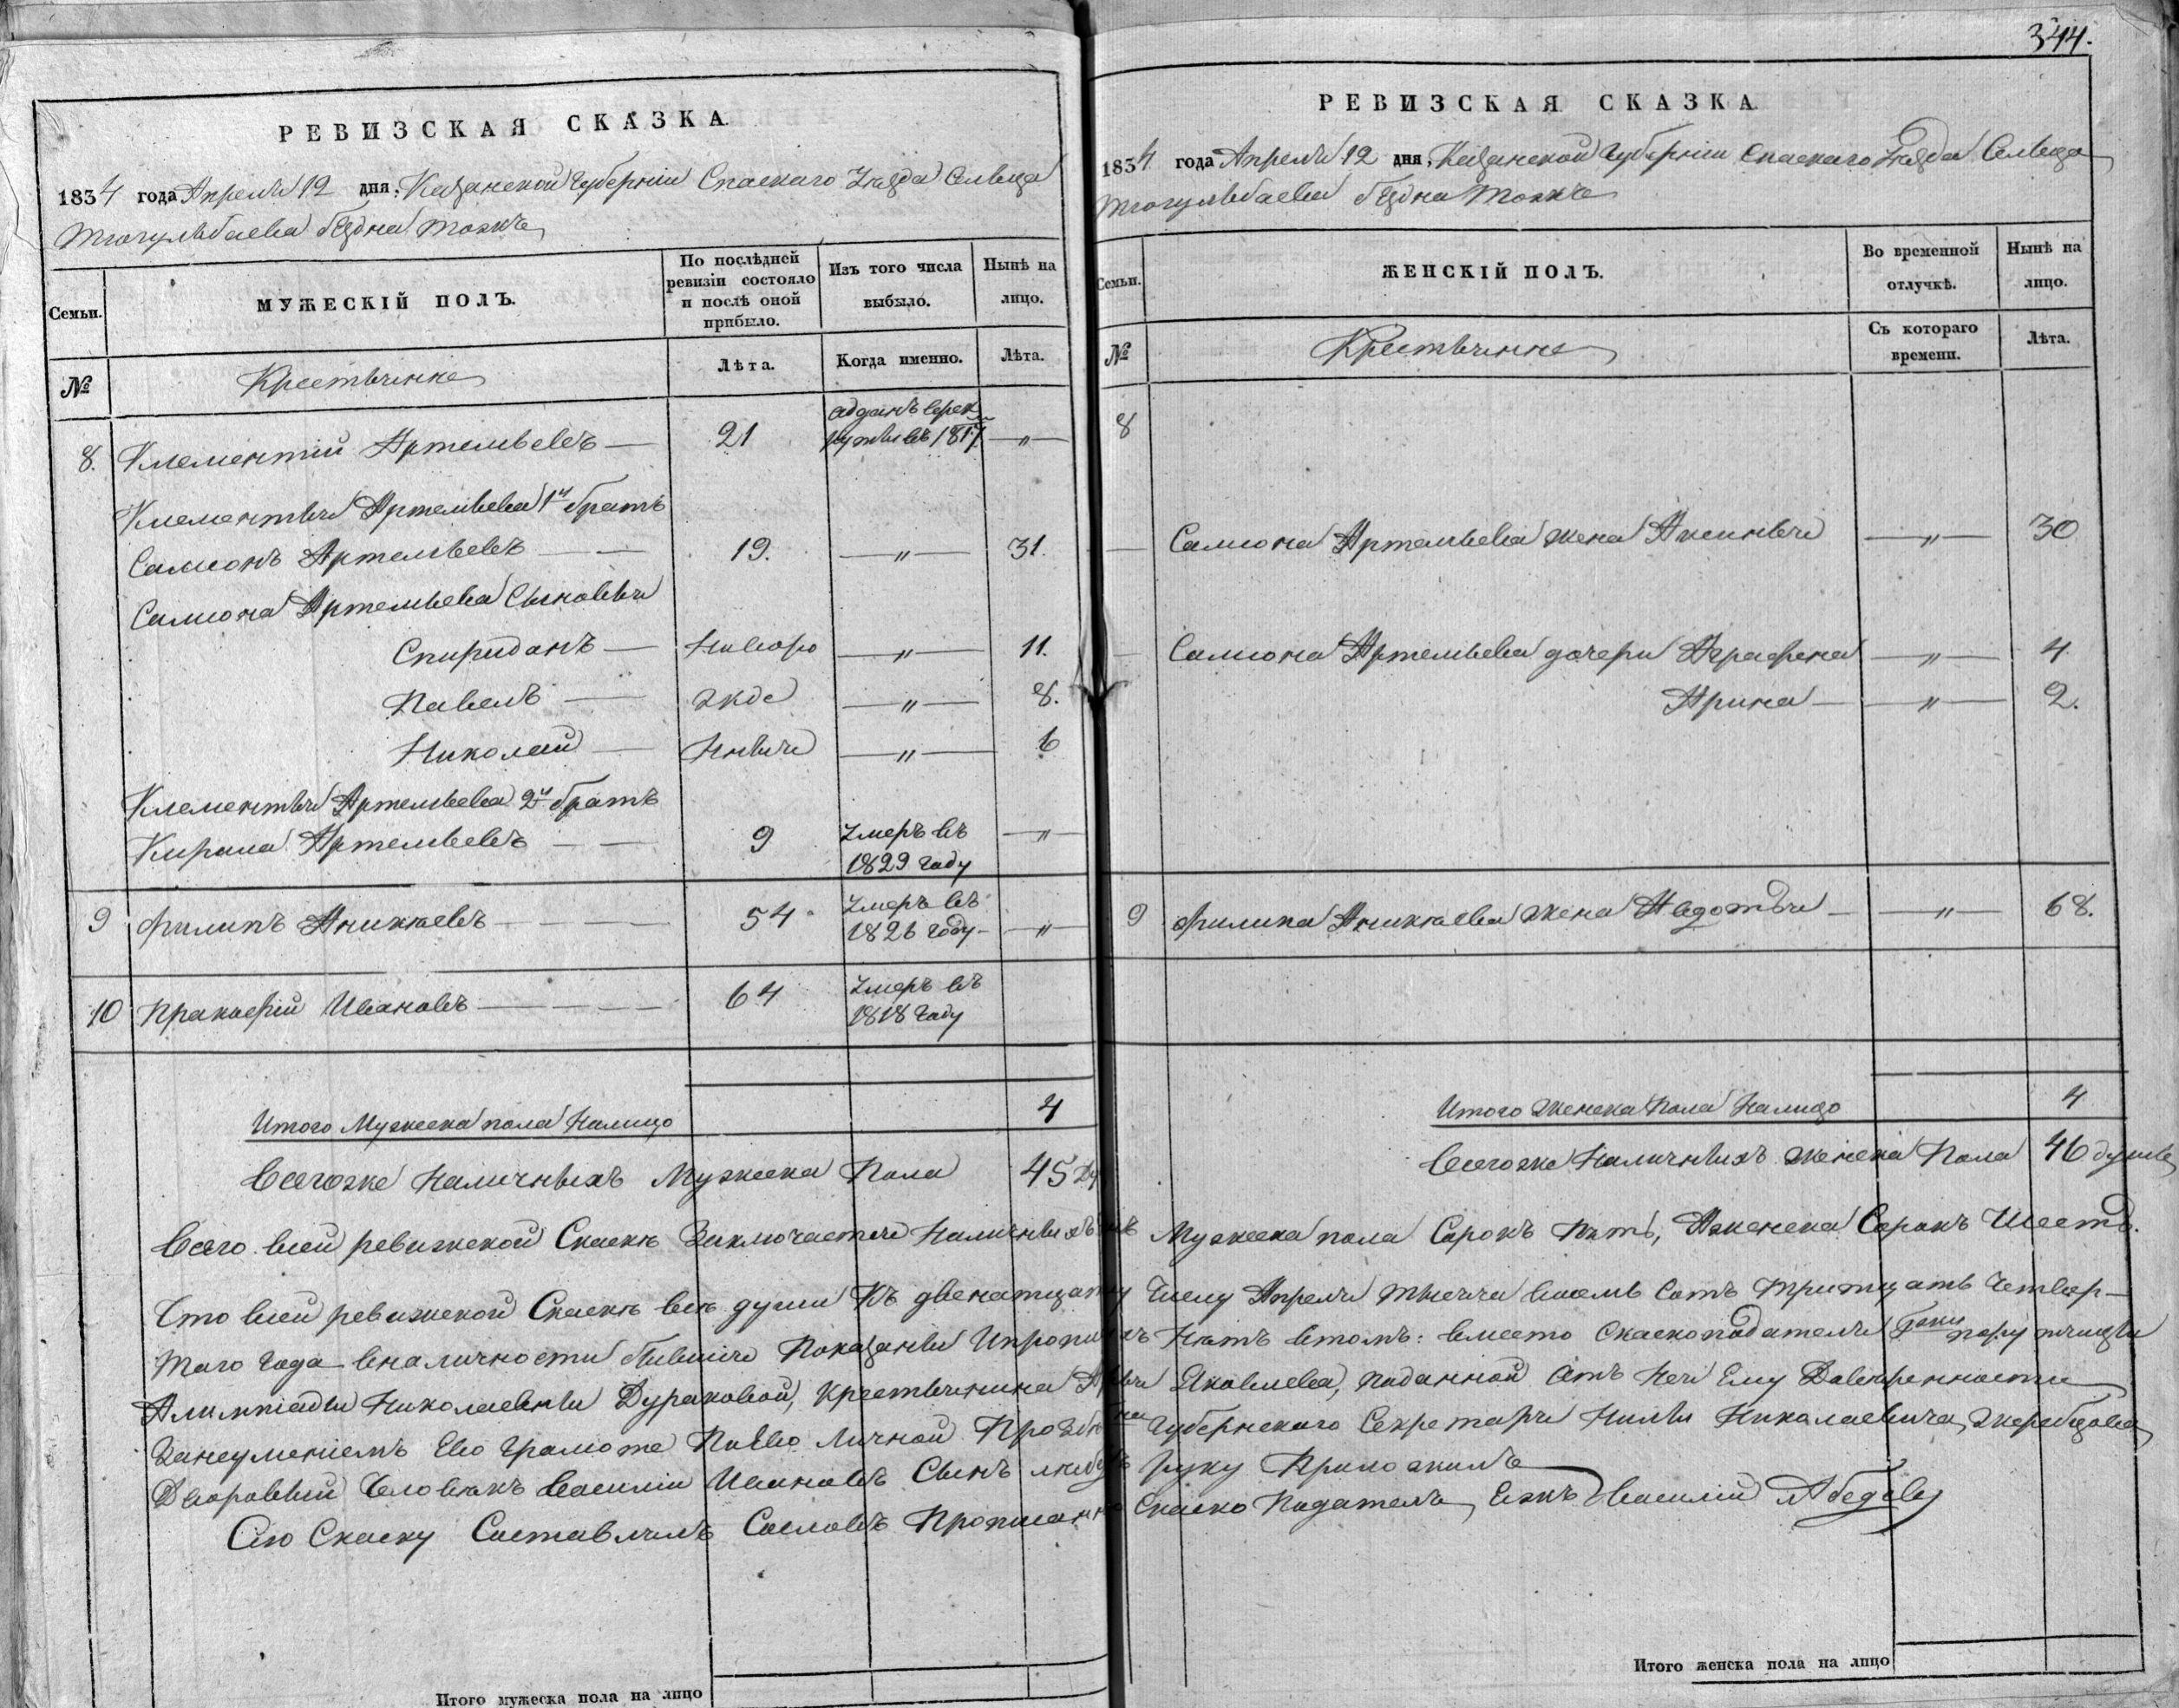 РЕВИЗСКАЯ СКАЗКА
1834 года Апреля 12 дня, Казанской Губернии Спаскаго Уезда Сельца
бездна тожъ
Семьи.
МУЖЕСКІЙ ПОЛЪ.
По послѣдней ревизіи состояло и послѣ оной прибыло.
Изъ того числа выбыло.
Нынѣ на лицо.
№
Крестьяне
Лѣта.
Когда именно.
Лѣта.
8. Клементий Артемьевъ — 21 адданъ врек
руты въ 181 — „ —
Клементья Артемьева 1й братъ
Самсонъ Артемьевъ — 19. — „ — 31.
Самсона Артемьева Сыновья
Спиридонъ — Новоро — „ — 11.
Павелъ — жде — „ — 8.
Николай — нныя — „ — 6
Клементья Артемьева 2й братъ
Кирила Артемьевъ — 9 Умеръ въ
1829 году — „ —
9 Филипъ Аникеевъ — 54 Умеръ въ
1826 году — „ —
10 Пракофій Ивановъ — 64 Умеръ въ
1818 году
Итого Мужеска пола Налицо 4
Всегоже Наличныхъ Мужеска Пола 45
344.
РЕВИЗСКАЯ СКАЗКА
1834 года Апреля 12 дня, Казанской Губернии Спаскаго Уезда Сельца
бездна тожъ
Семьи.
ЖЕНСКІЙ ПОЛЪ.
Во временной отлучкѣ.
Нынѣ на лицо.
№
Крестьяне
Съ котораго времени.
Лѣта.
8
— Самсона Артемьева жена Аксинья — „ — 30
— Самсона Артемьева дочери Аграфена — „ — 4
Арина — „ — 2.
9 Филипа Аникеева жена Авдотья — „ — 68.
Итого Женска Пола Налицо 4
Всегоже Наличныхъ Женска Пола 46 душъ
Всего всей ревижской Скаске Заключается Наличныхъ Мужеска пола Сорокъ Пять, Аженска Сорокъ Шесть.
Сто всей ревижской Скаске все души Къ двенатцатому Числу Апреля тысяча восемь Сотъ тритцать Четвер-
таго года вналичности бывшие Показаны Ипрописныхъ Нетъ втомъ: вместо Скаскоподателя порутчицы
Алимпіады Николаевны Дураковой, крестьянина Яковлева, поданной отъ Нея Ему Доверенности
Занеуменіемъ Ево Грамоте Поево Личной Прозбе Губернскаго Секретаря Нилы Николаевича Жеребцова
Дворовый Человекъ Василий Ивановъ Сынъ руку Приложилъ
Сию Скаску Составлялъ Сословъ Прописанно Скаско Подателя, Ежъ Василий
Итого мужеска пола на лицо
Итого женска пола на лицо